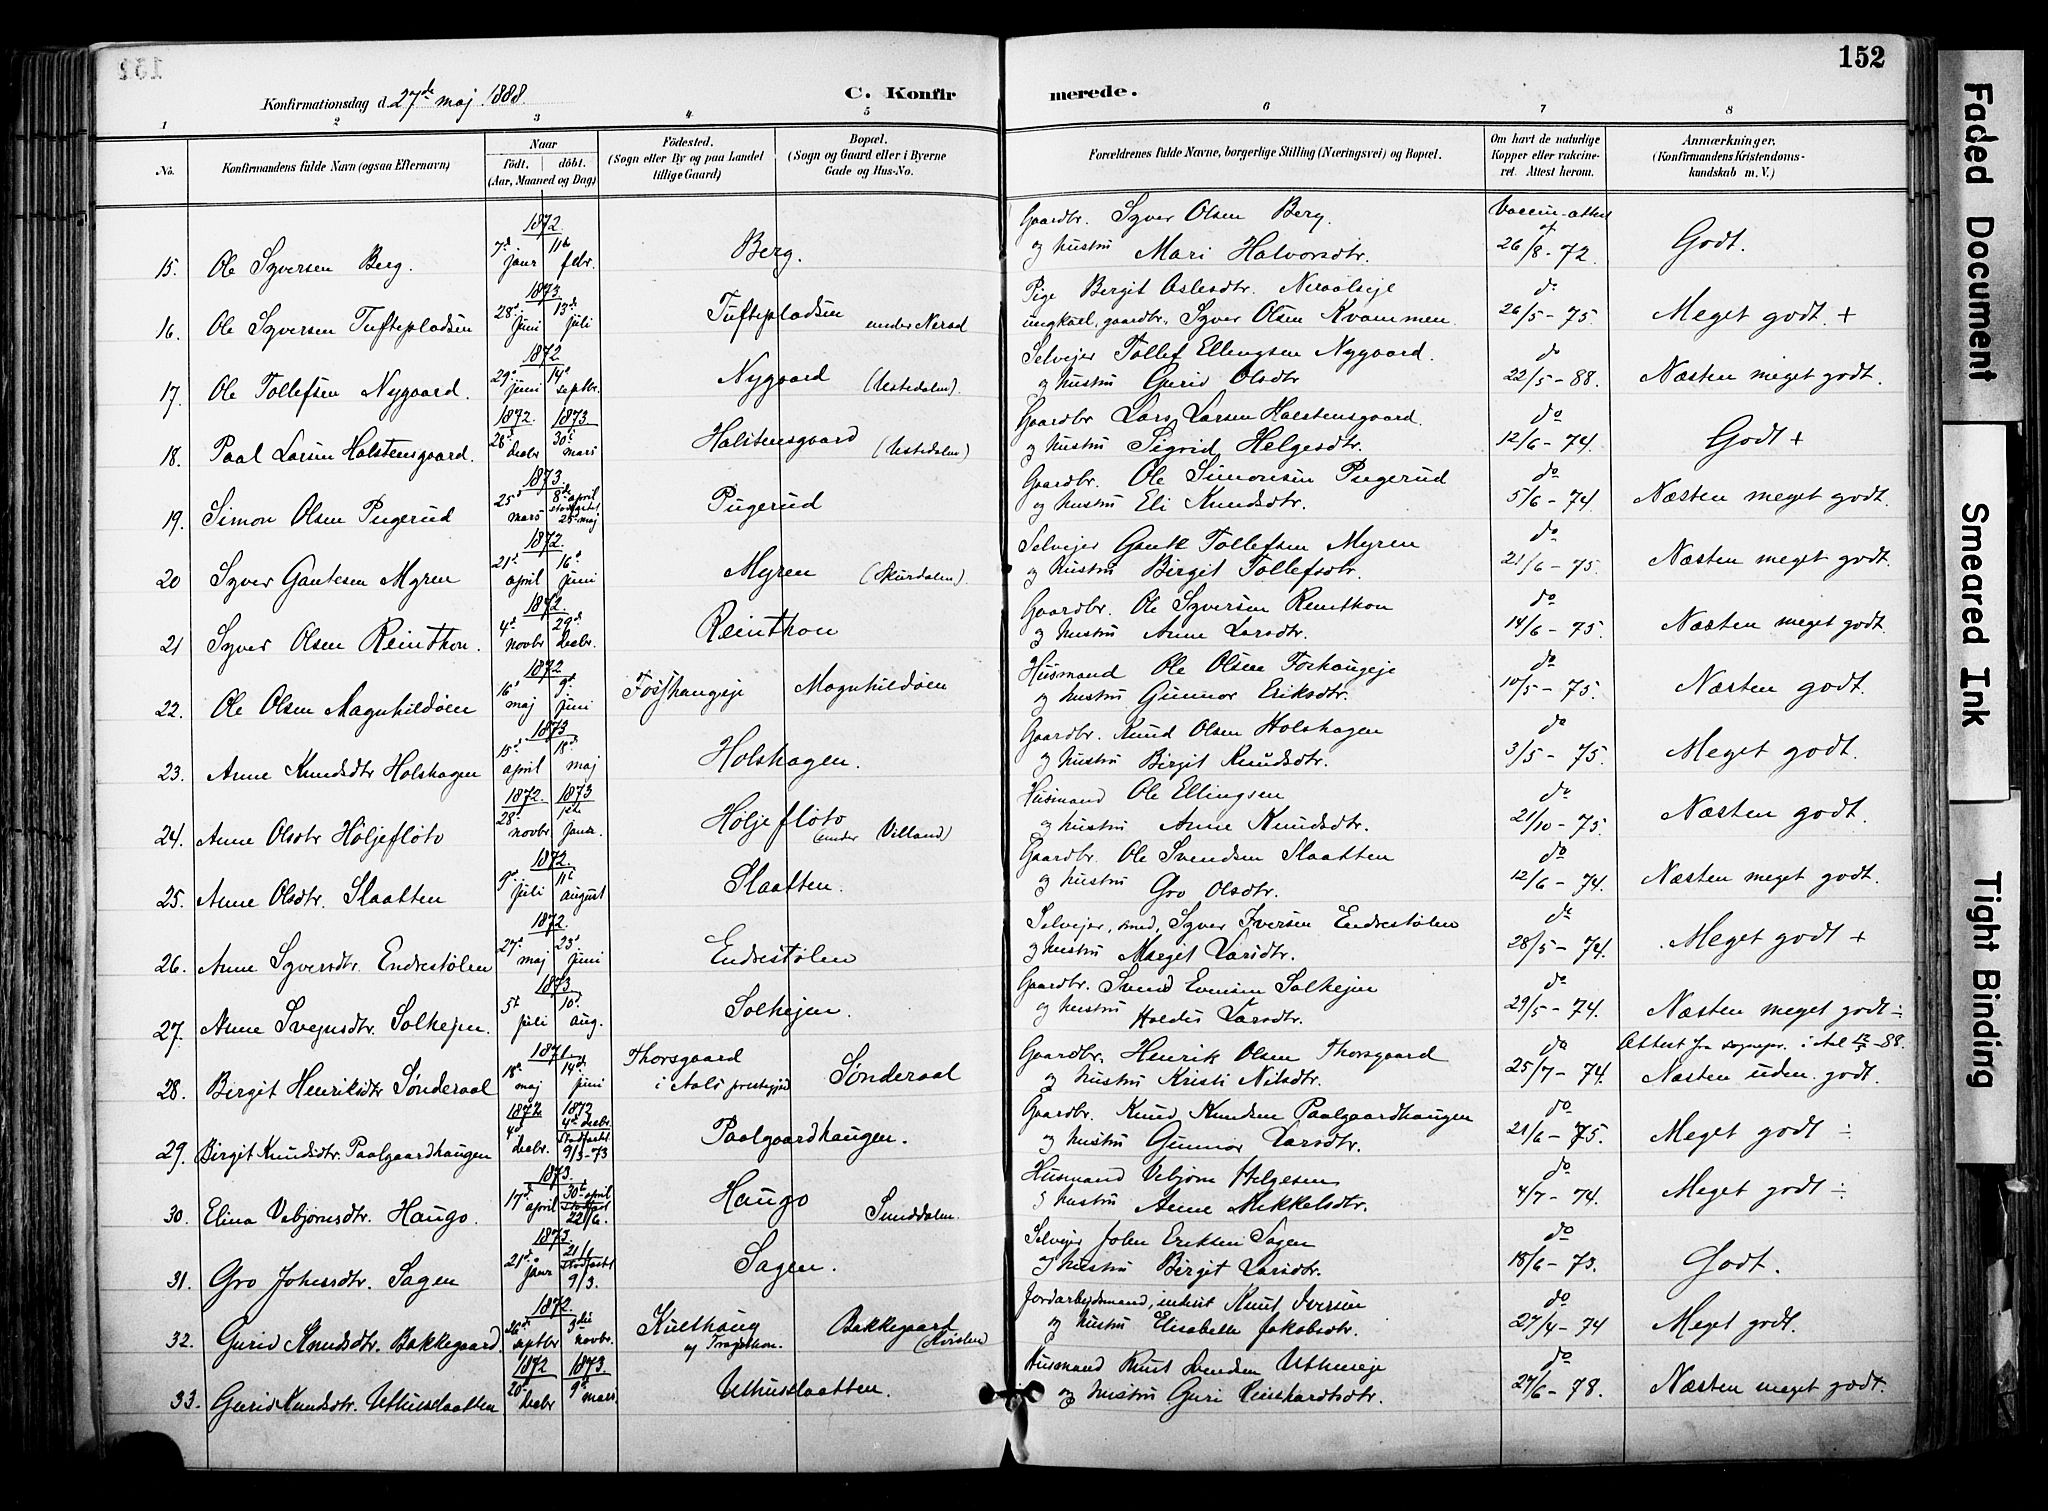 152
Konfirmationsdag d. 27de maj 1888.
C. Konfirmerede.
1 2 3 4 5 6 7 8
No. Konfirmandens fulde Navn (ogsaa Efternavn) Naar født. døbt. (Aar, Maaned og Dag) Födested. (Sogn eller By og paa Landet tillige Gaard) Bopæl. (Sogn og Gaard eller i Byerne Gade og Hus-No. Forældrenes fulde Navne, borgerlige Stilling (Næringsvei) og Bopæl. Om havt de naturlige Kopper eller vakcineret. Attest herom. Anmærkninger. (Konfirmandens Kristendomskundskab m. V.)
15. Ole Syversen Berg. 1872 7d janr 11te febr. Berg. Gaardbr. Syver Olsen Berg. og hustru Mari Halvorsdtr. Vaccin-attest af 26/8-72. Godt.
16. Ole Syversen Tuftepladsen 1873 28d juni 13de juli Tuftepladsen under Neraal Pige Bergit Oslesdtr. Neraaleje ungkarl, gaardbr. Syver Olsen Kvammen do 26/5-75. Meget godt. +
17. Ole Tollefsen Nygaard. 1872 29d juni 14d septbr. Nygaard (Ustedalen) Selvejer Tollef Ellingsen Nygaard. og hustru Gurid Olsdtr do 22/5-88. Næsten meget godt.
18. Paal Larsen Halstensgaard. 1872. 28d decbr 1873 30d mars Halstensgaard (Ustedalen) Gaardbr Lars Larsen Halstensgaard. og hustru Sigrid Helgesdtr. do 12/6-74. Godt +
19. Simon Olsen Pugerud 1873. 25d mars 8de april stadfæstet 25 maj Pugerud Gaardbr. Ole Simonsen Pugerud og hustru Eli Knudsdtr. do 5/6-74. Næsten meget godt.
20 Syver Gautesen Myren 1872. 21d april 16d juni Myren (Skurdalen) Selvejer Gautk Tollefsen Myren og hustru Birgit Tollefsdtr. do 21/6-75. Næsten meget godt.
21 Syver Olsen Reinthon. 1872. 4d novbr 29d decbr. Reinthon Gaardbr. Ole Syversen Reinthon og hustru Anne Larsdtr. do 14/6-75. Næsten meget godt.
22. Ole Olsen Magnhildøen 1872. 16d maj 9d juni Fosshaugeje Magnhildøen Husmand Ole Olsen Foshaugeje og hustru Gunnor Eriksdtr. do 10/5-75. Næsten godt.
23. Anne Knudsdtr Holshagen 1873 15d april 18d maj Holshagen. Gaardbr. Knud Olsen Holshagen og hustru Birgit Knudsdtr. do 3/5-75. Meget godt.
24. Anne Olsdtr Höljeflöto 1872. 28d novbr 1873 1ste janr. Höljeflöto (under Villand) Husmand Ole Ellingsen og hustru Anne Knudsdtr. do 21/10-75. Næsten godt.
25. Anne Olsdtr. Slaatten 1872. 9d juli 11te august Slaatten. Gaardbr. Ole Svendsen Slaatten og hustru Gro Olsdtr. do 12/6-74. Næsten meget godt.
26. Anne Syversdtr. Endrestölen 1872. 27d maj 23d juni Endrestölen Selvejer, smed, Syver Iversen Endrestölen og hustru Marget Larsdtr. do 28/5-74. Meget godt +
27. Anne Svejnsdtr. Solhejen. 1873. 5t juli 10d aug. Solhejen. Gaardbr. Svend Evensen Solhejen og hustru Haldis Larsdtr. do 29/5-74. Næsten meget godt ÷
28. Birgit Henriksdtr Sönderaal 1871. 18d maj 14d juni Thorsgaard i Aals prestegjed Sönderaal Gaardbr. Henrik Olsen Thorsgaard og hustru Kristi Nilsdtr. do 25/7-74. Attest fra sognepr. i Aal -88. Næsten uden. godt.
29. Birgit Knudsdtr. Paalgaardhaugen 1872 4d decbr. 1872 4d decbr. stadfæstet 9/3-73 Paalgaardhaugen. Gaardbr. Knud Knudsen Paalgaardhaugen og hustru Gunnor Larsdtr. do 21/6-75. Meget godt ÷
30. Elina Vebjørnsdtr. Haugo. 1873. 17d april 30te april stadfæst 22/6. Haugo Sunddalen. Husmand Vebjørn Helgesen og hustru Anne Mikkelsdtr. do 4/7-74. Meget godt ÷
31. Gro Johnsdtr. Sagen 1873. 21d janr 21/1 stadfæstet 9/3. Sagen. Selvejer John Eriksen Sagen og hustru Birgit Larsdtr. do 18/6-73. Godt.
32. Gurid Knudsdtr. Bakkegaard. 1872. 26d septbr 3die novbr. Kulthaug Bakkegaard (Kvislen) Jordarbejdsmand, inderst Knut Iversen og hustru Elisabeth Jakobsdtr. do 27/4-74 Meget godt.
33. Gurid Knudsdtr. Uthusslaatten 1872 20d decbr 1873. 9d mars. Uthusslaatten. Husmand Knut Svendsen Uthuseje og hustru Guri Reinhardtsdtr. do 27/6-78. Næsten meget godt.
Faded Document
Smeared Ink
Tight Binding